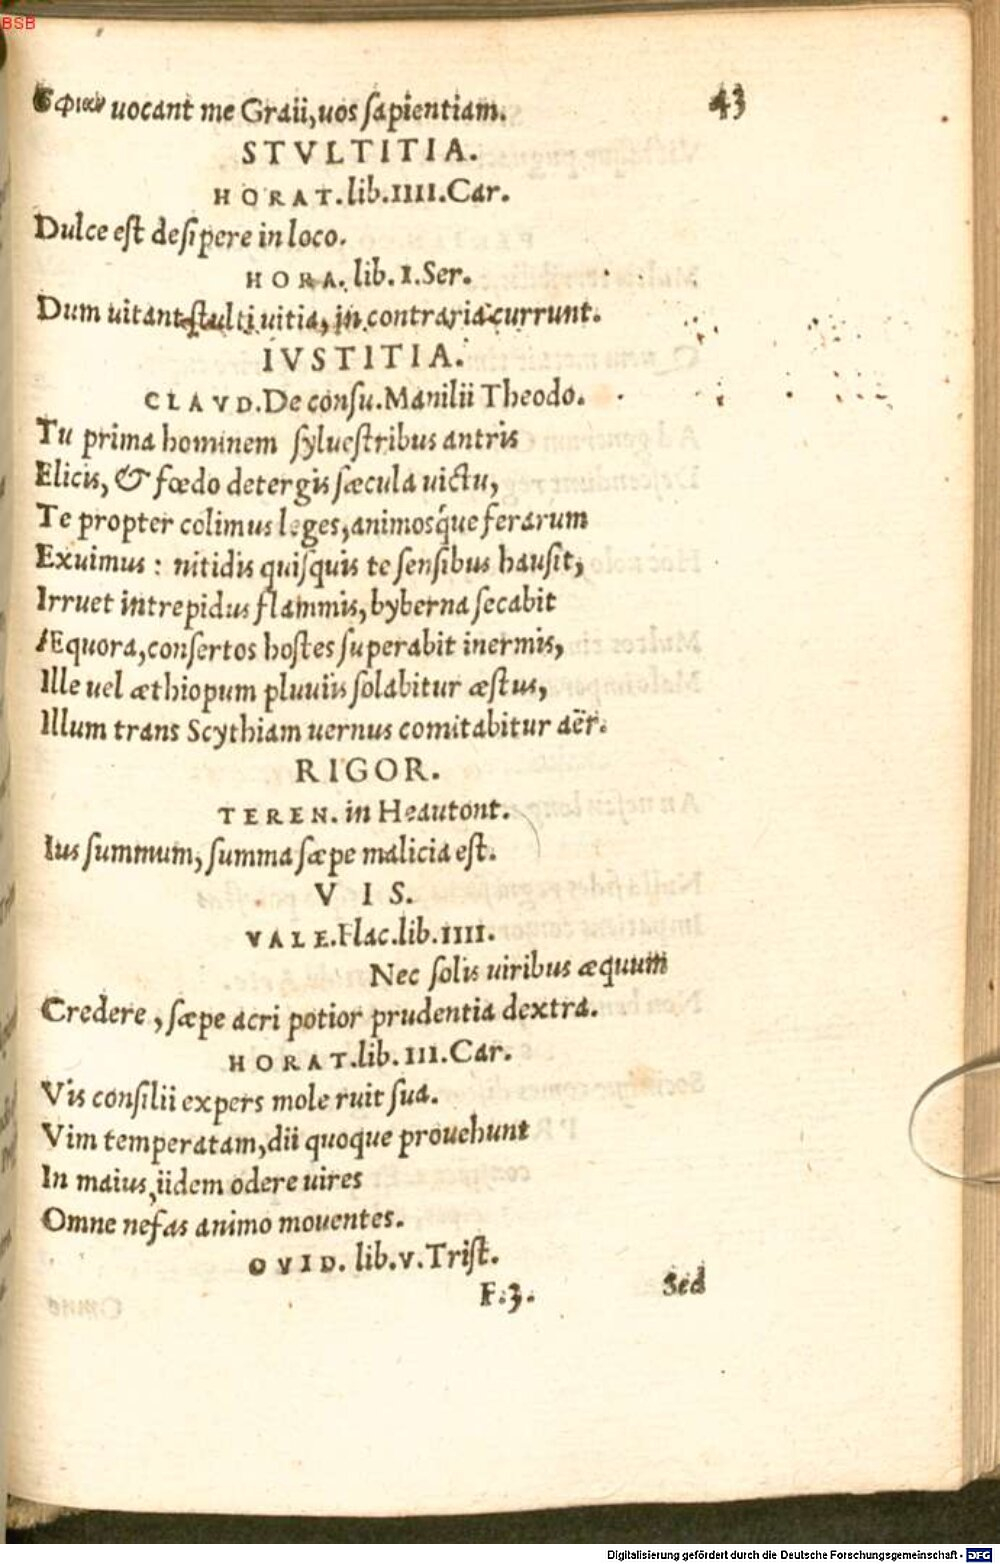 BSB
43
Σοφιαν uocant me Graii, uos ſapientiam.
STVLTITIA.
HORAT. lib. IIII. Car.
Dulce eſt deſipere in loco.
HORA. lib. I. Ser.
Dum uitant ſtulti uitia, in contraria currunt.
IVSTITIA.
CLAVD. De conſu. Manilii Theodo.
Tu prima hominem ſylueſtribus antris
Elicis, & fœdo detergis ſæcula uictu,
Te propter colimus leges, animosq́ue ferarum
Exuimus: nitidis quiſquis te ſenſibus hauſit,
Irruet intrepidus flammis, hyberna ſecabit
Æquora, conſertos hoſtes ſuperabit inermis,
Ille uel æthiopum pluuiis ſolabitur æſtus,
Illum trans Scythiam uernus comitabitur aër.
RIGOR.
TEREN. in Heautont.
Ius ſummum, ſumma ſæpe malicia eſt.
VIS.
VALE. Flac. lib. IIII.
Nec ſolis uiribus æquum
Credere, ſæpe acri potior prudentia dextra.
HORAT. lib. III. Car.
Vis conſilii expers mole ruit ſua.
Vim temperatam, dii quoque prouehunt
In maius, iidem odere uires
Omne nefas animo mouentes.
OVID. lib. V. Triſt.
F. 3. Sed
Digitalisierung gefördert durch die Deutsche Forschungsgemeinschaft - DFG